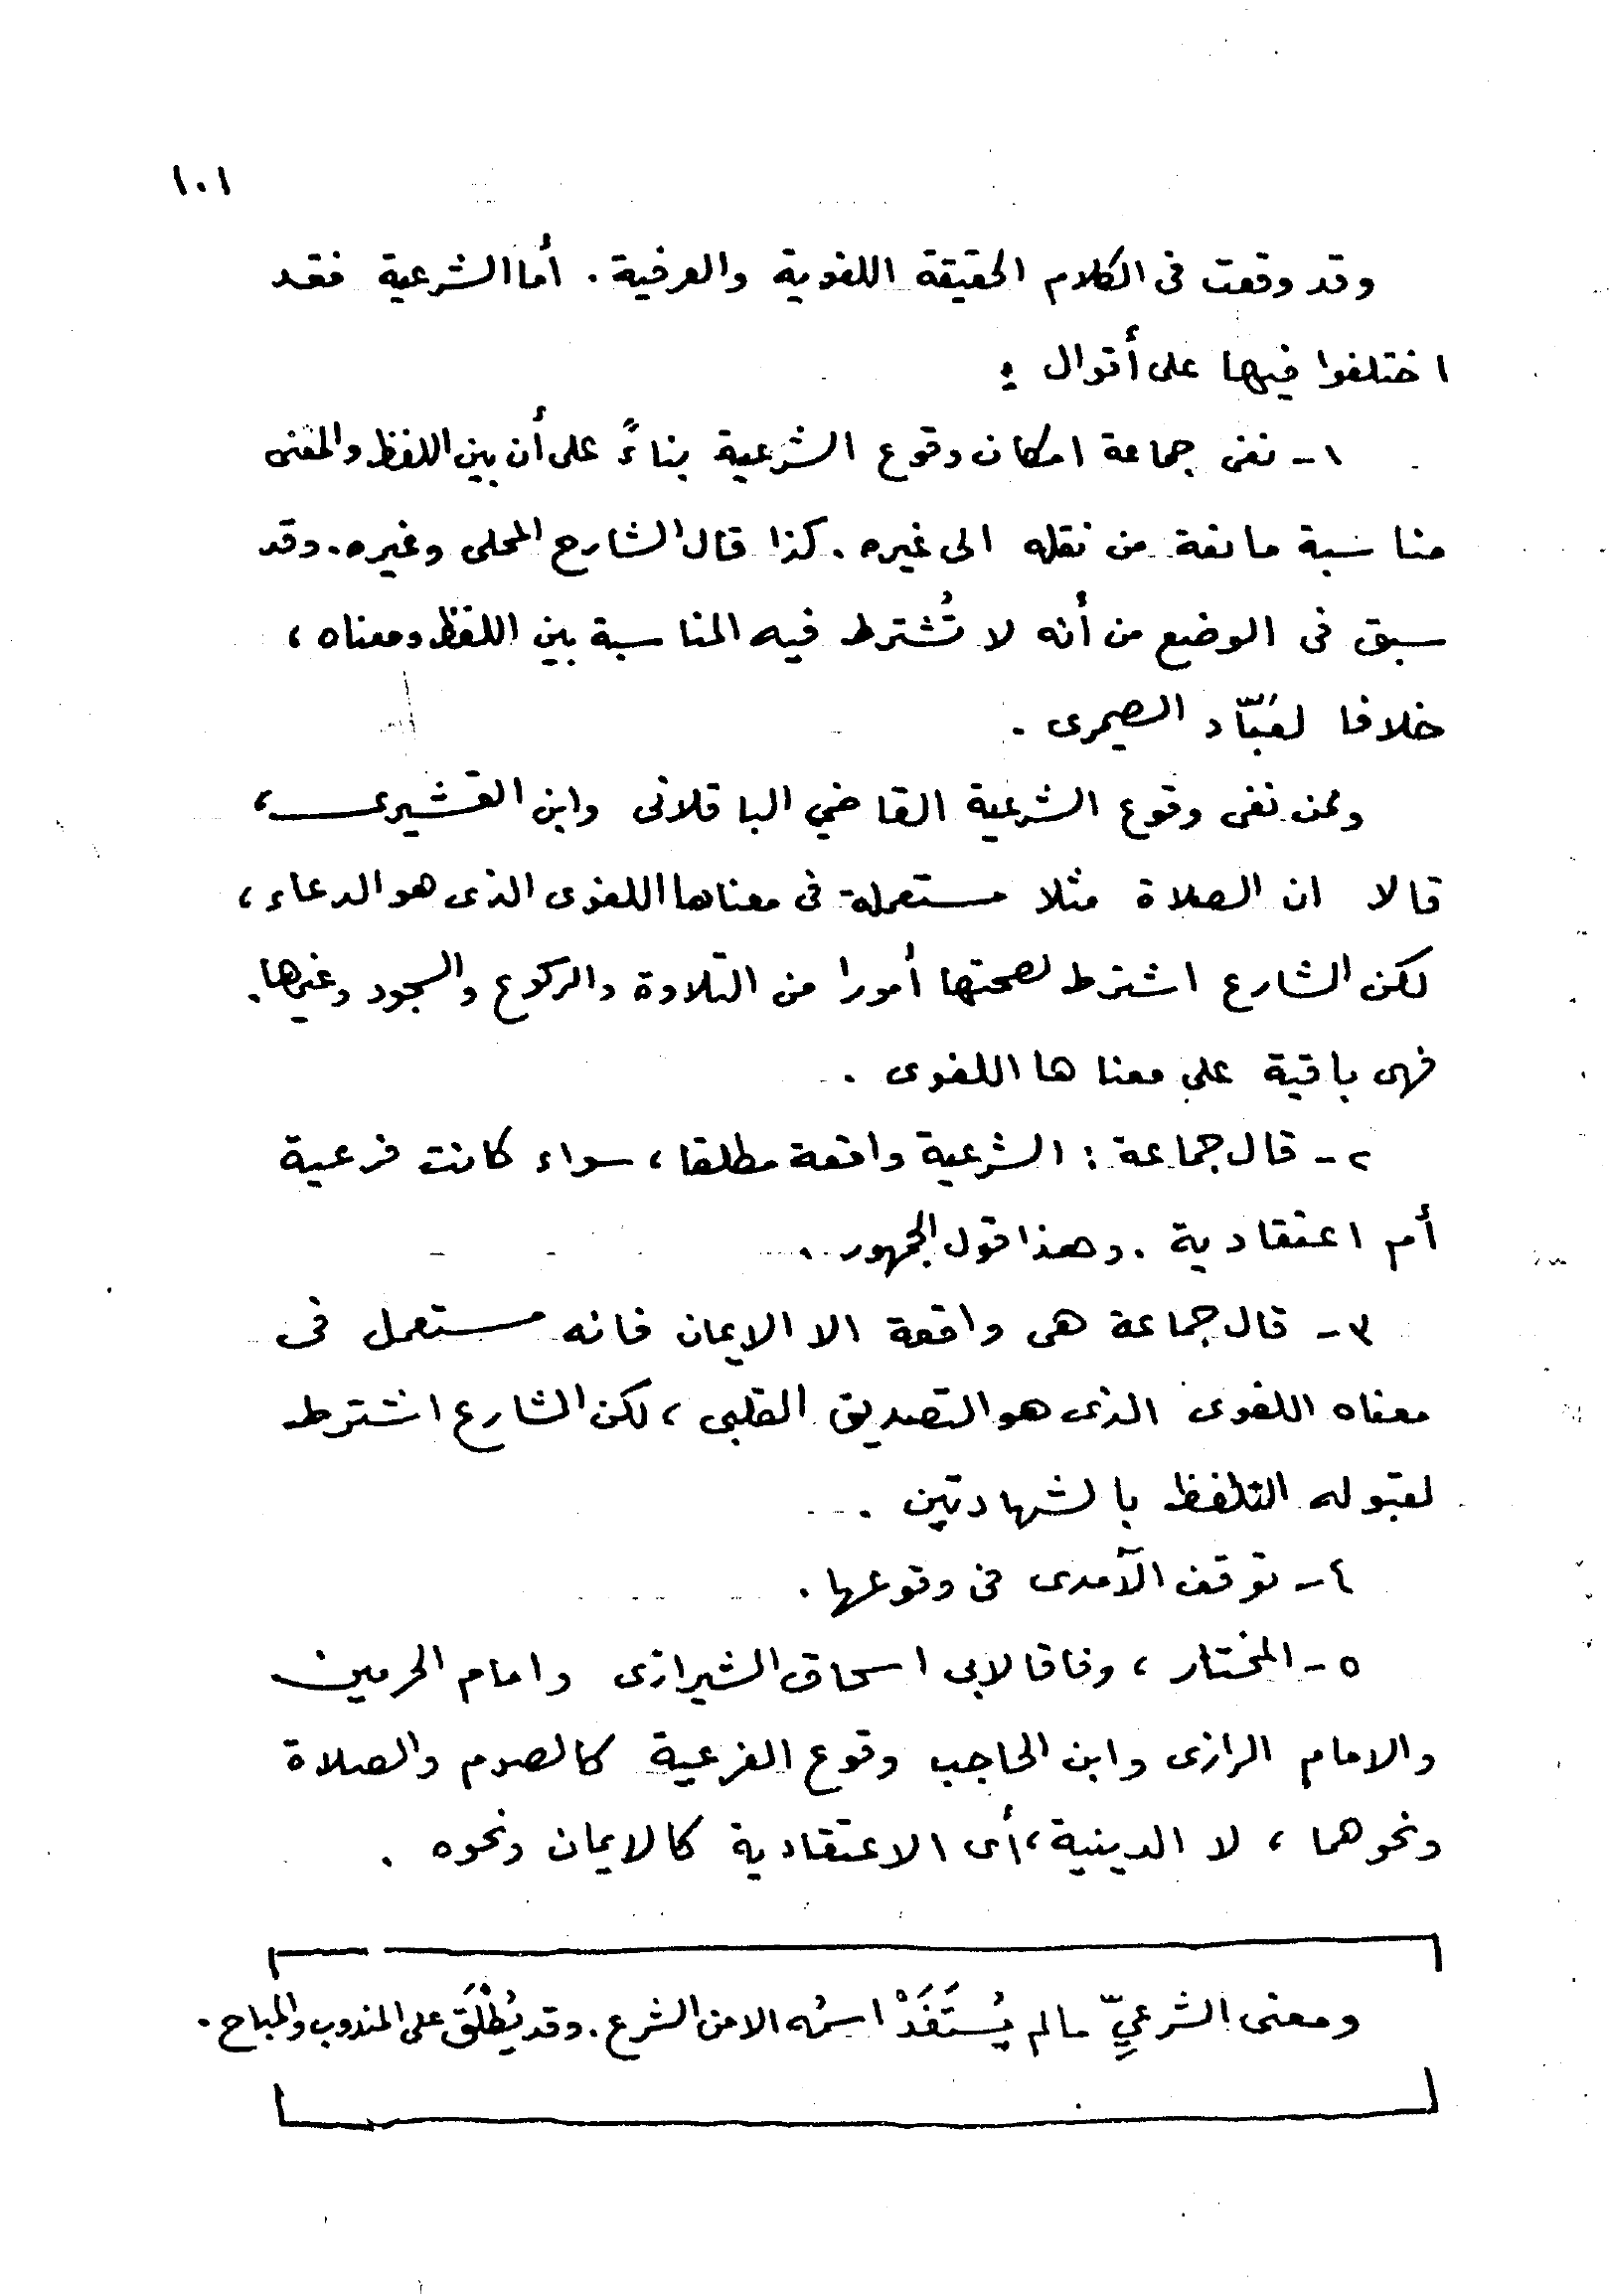 ١٠١
وقد وقعت فى الكلام الحقيقة اللغوية والعرفية . أما الشرعية فقد
اختلفوا فيها على أقوال :
١- نفى جماعة امكان وقوع الشرعية بناءً على أن بين اللفظ والمعنى
مناسبة مانعة من نقله الى غيره . كذا قال الشارح المحلى وغيره . وقد
سبق فى الوضع من أنه لا تُشترط فيه المناسبة بين اللفظ ومعناه ،
خلافا لعَبّاد الصيمرى .
وممن نفى وقوع الشرعية القاضي الباقلانى وابن القشيرى ،
قالا ان الصلاة مثلا مستعملة فى معناها اللغوى الذى هو الدعاء ،
لكن الشارع اشترط لصحتها أمورا من التلاوة والركوع والسجود وغيرها .
فهى باقية على معناها اللغوى .
٢- قال جماعة : الشرعية واقعة مطلقا ، سواء كانت فرعية
أم اعتقادية . وهذا قول الجمهور .
٣- قال جماعة هى واقعة الا الايمان فانه مستعمل فى
معناه اللغوى الذى هو التصديق القلبى ، لكن الشارع اشترط
لقبوله التلفظ بالشهادتين .
٤- توقف الآمدى فى وقوعها .
٥- المختار ، وفاقا لابى اسحاق الشيرازى وامام الحرمين
والامام الرازى وابن الحاجب وقوع الفرعية كالصوم والصلاة
ونحوهما ، لا الدينية ، أى الاعتقادية كالايمان ونحوه .
ومعنى الشرعيِّ مالم يُستَفَدْ اسمُه الا من الشرع . وقد يُطْلَق على المندوب والمباح .